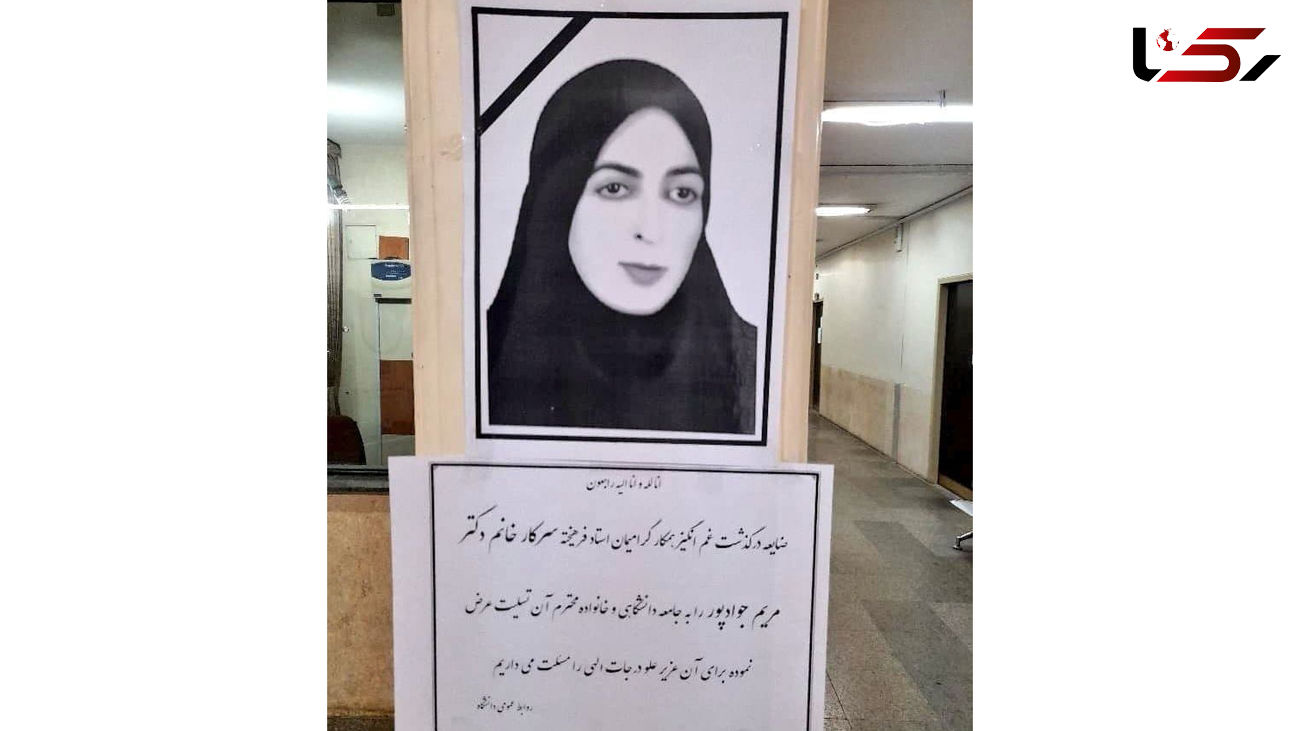 رکنا
انا لله و انا الیه راجعون
ضایعه درگذشت غم انگیز همکار گرامیمان استاد فرهیخته سرکار خانم دکتر
مریم جوادپور را به جامعه دانشگاهی و خانواده محترم آن تسلیت عرض
نموده برای آن عزیز علو درجات الهی را مسئلت می داریم
روابط عمومی دانشگاه